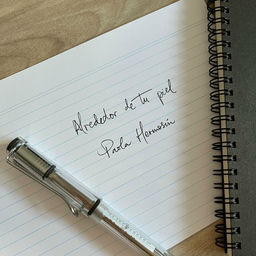 Alrededor de tu piel
Paola Hermosín